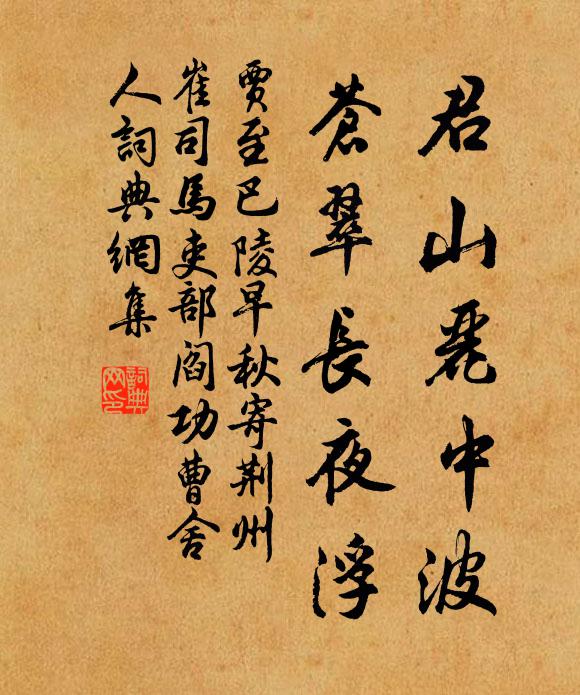 君山麗中波
蒼翠長夜浮
賈至巴陵早秋寄荆州
崔司馬吏部閻功曹舍
人詞典網集
詞典
网印